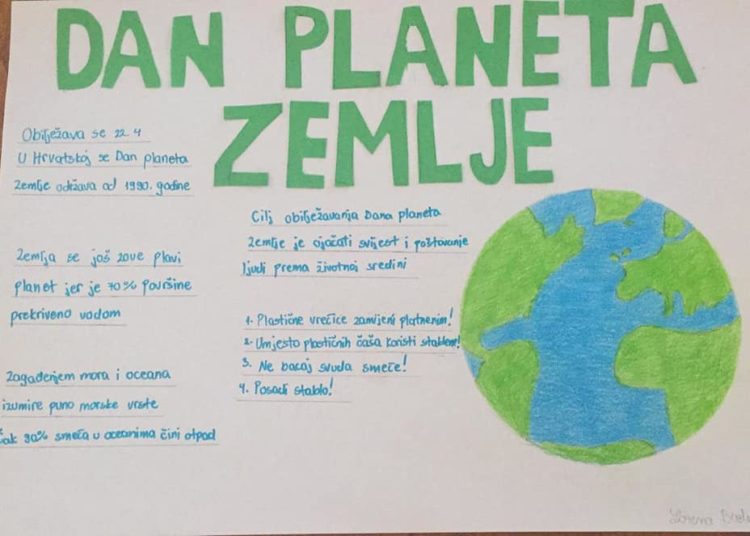 DAN PLANETA
ZEMLJE
Obilježava se 22.4
U Hrvatskoj se Dan planeta
Zemlje održava od 1990. godine
Zemlja se još zove plavi
planet jer je 70% površine
prekriveno vodom
Zagađenjem mora i oceana
izumire puno morske vrste
čak 90% smeća u oceanima čini otpad
Cilj obilježavanja Dana planeta
Zemlje je ojačati svijest i poštovanje
ljudi prema životnoj sredini
1. Plastične vrećice zamijeni platnenim!
2. Umjesto plastičnih čaša koristi staklene!
3. Ne bacaj svuda smeće!
4. Posadi stablo!
Lorena